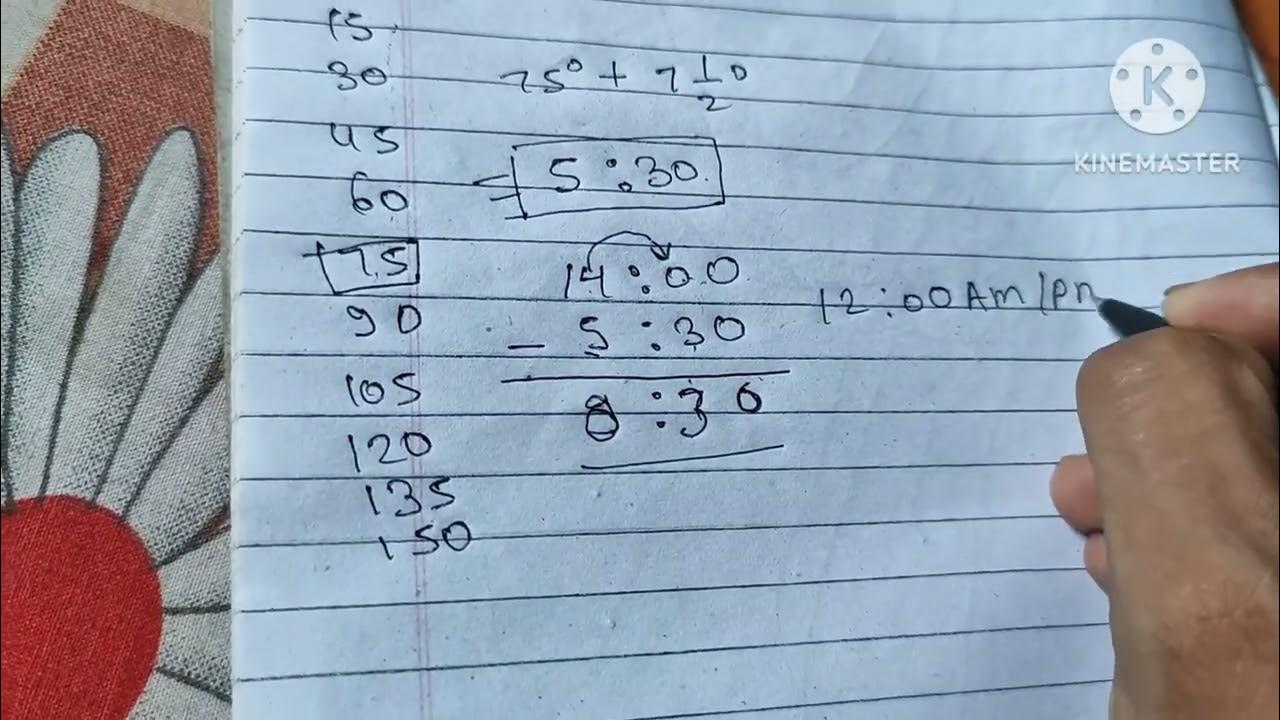 15
30
45
60
75
90
105
120
135
150
75° + 7 1/2°
= 5:30
14:00
- 5:30
8:30
12:00 Am/Pm
KINEMASTER